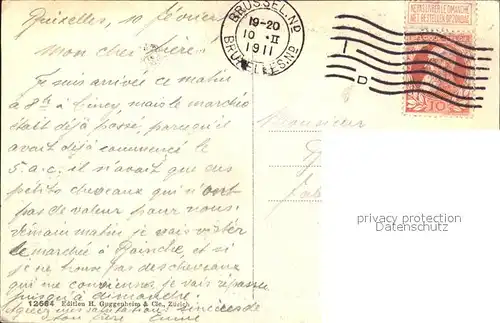 Bruxelles, 10 février
Mon cher frère.
Je suis arrivé ce matin
à 8h à Ciney, mais le marché
était déjà passé, parcequ'il
avait déjà commencé le
5. a.c; il n'avait que des
petits chevaux qui n'ont
pas de valeur pour nous.
Demain matin je vais visiter
le marché à et si
je ne trouve pas des chevaux
qui me conviennent je vais repasser
jusqu'à dimanche.
salutations sincères de
ton frère
12684 Edition H. Guggenheim & Cie., Zürich
BRUSSEL.ND
19-20
10 - II
1911
BRUXELLES.ND
NE PAS LIVRER LE DIMANCHE
NIET BESTELLEN OP ZONDAG
10
Monsieur
privacy protection
Watermark